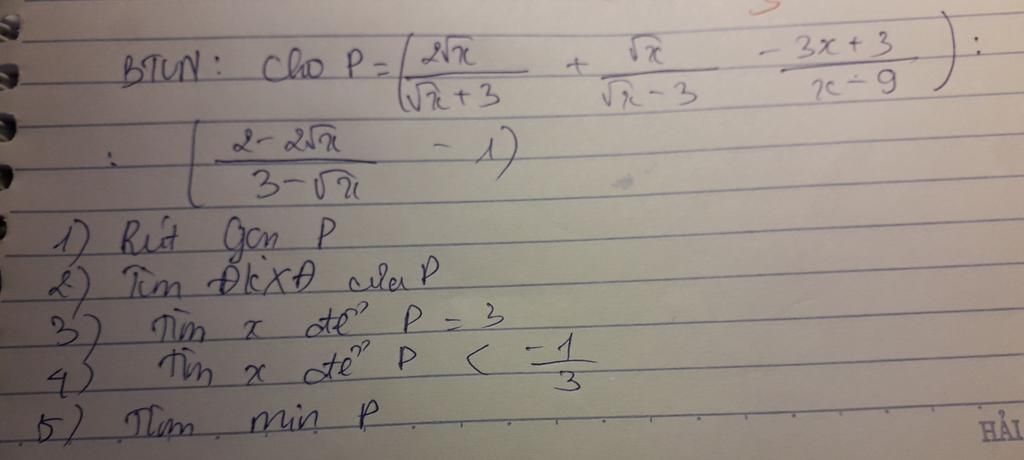 BTVN: Cho P = (2√x/(√x + 3) + √x/(√x - 3) - (3x + 3)/(x - 9)) :
: ((2 - 2√x)/(3 - √x) - 1)
1) Rút gọn P
2) Tìm ĐKXĐ của P
3) Tìm x để P = 3
4) Tìm x để P < -1/3
5) Tìm min P
HẢI